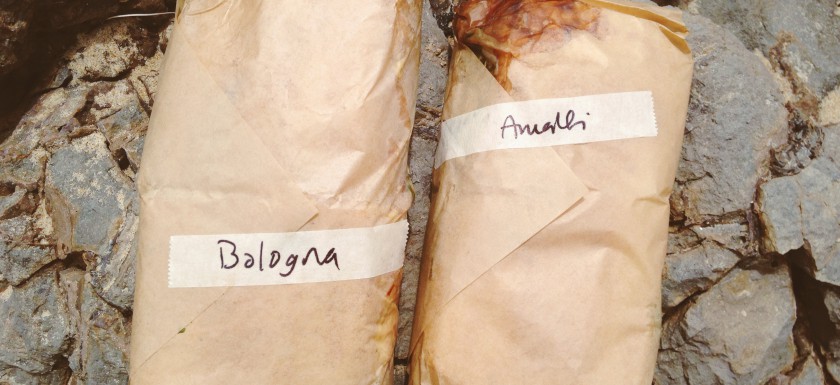 Bologna
Amalfi